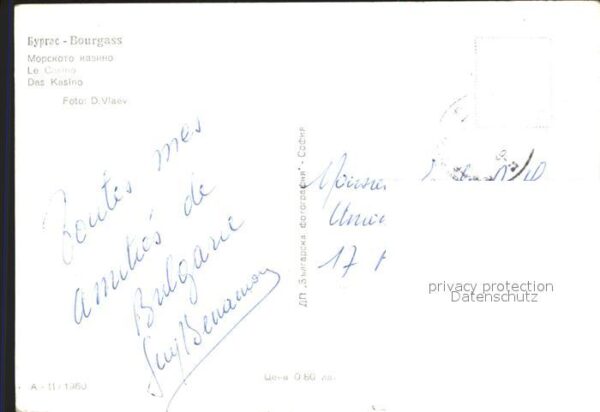 Бургас - Bourgass
Морското казино
Le Casino
Das Kasino
Foto: D. Vlaev
Toutes mes
amitiés de
Bulgarie
Guy Benamou
ДП „Българска фотография" - София
17
privacy protection
Datenschutz
А - II / 1960
Цена 0.60 лв.